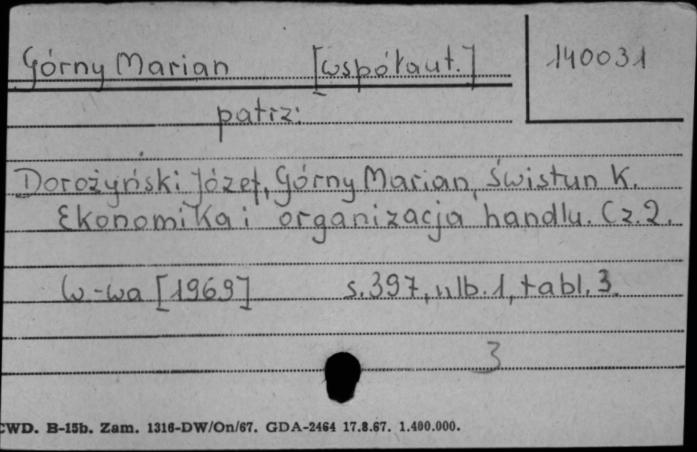 Górny Marian [współaut.] 140031
patrz:
Dorożyński Józef, Górny Marian, Świstun K.
Ekonomika i organizacja handlu. Cz.2.
W-wa [1969] s.397, nlb.1, tabl.3.
3
CWD. B-15b. Zam. 1316-DW/On/67. GDA-2464 17.8.67. 1.400.000.